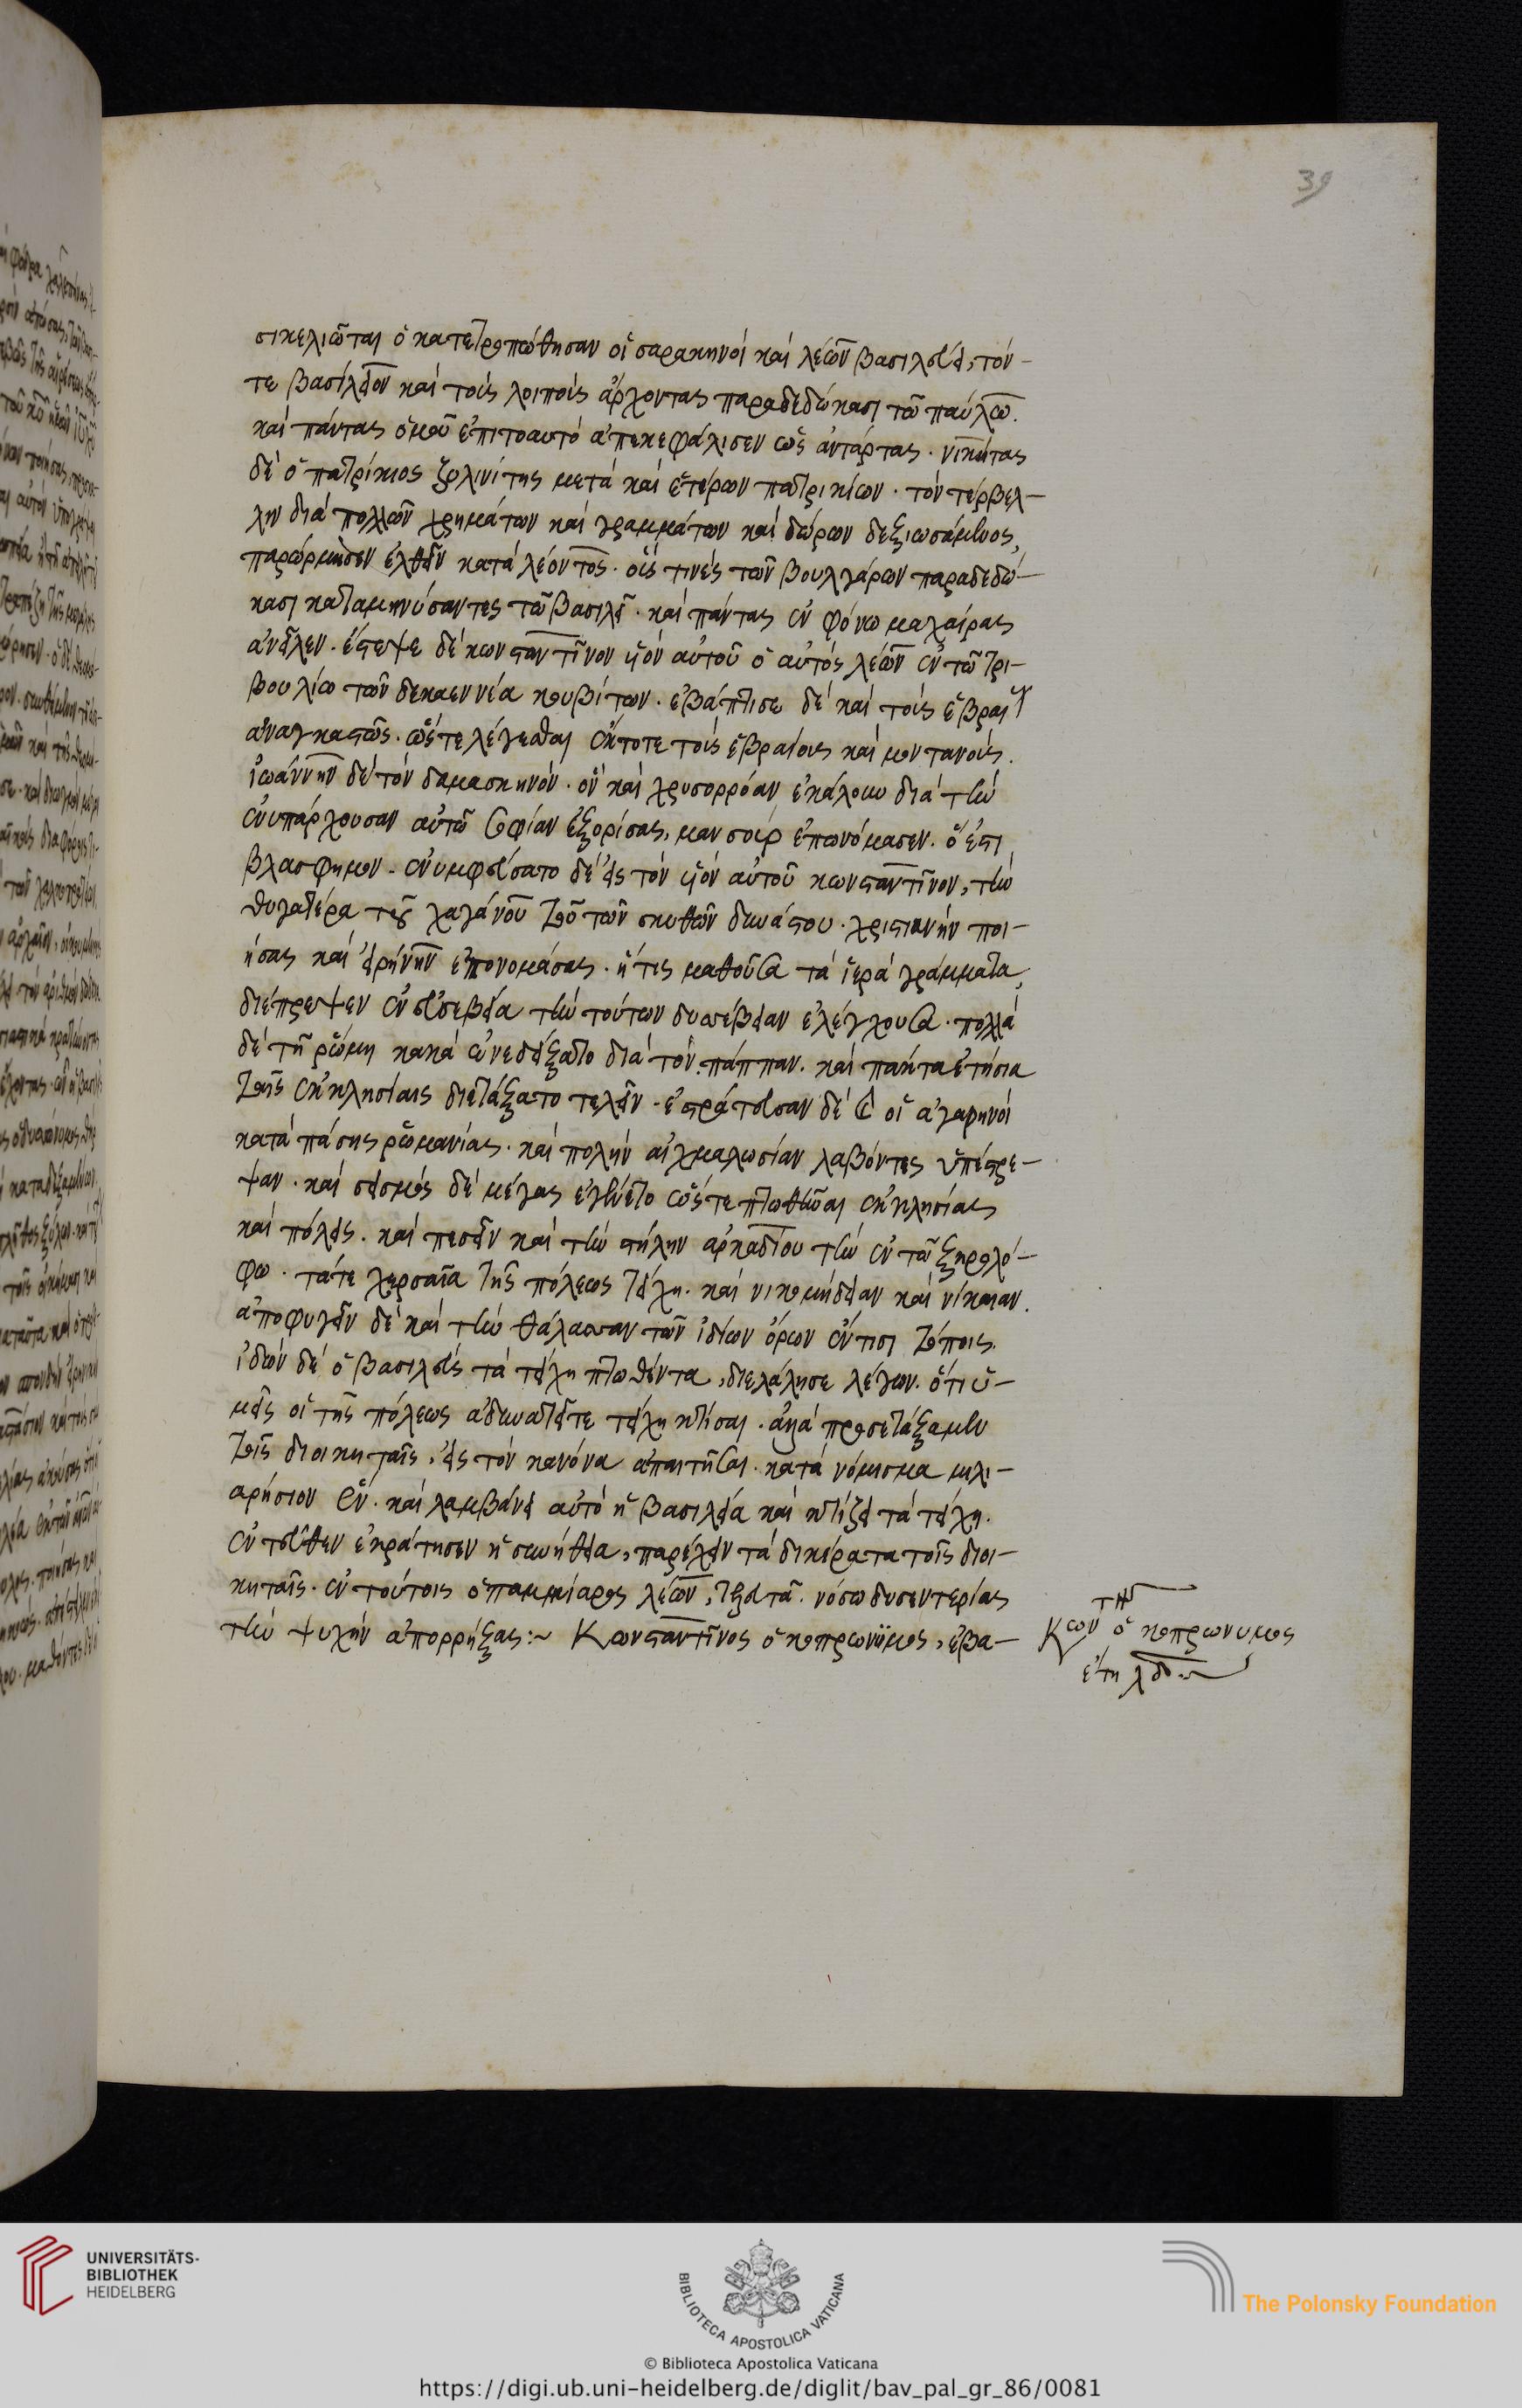 39
σικελιῶται ὁ κατετροπώθησαν οἱ σαρακηνοὶ καὶ λέων βασιλεύει, τόν-
τε βασίλειον καὶ τοὺς λοιποὺς ἄρχοντας παραδεδώκασι τῶ παύλω.
καὶ πάντας ὁμοῦ ἐπιτοαυτὸ ἀπεκεφάλισεν ὡς ἀντάρτας. νικήτας
δὲ ὁ πατρίκιος ξολινίτης μετὰ καὶ ἑτέρων πατρικίων. τὸν τέρβελ-
λην διὰ πολλῶν χρημάτων καὶ γραμμάτων καὶ δώρων δεξιωσάμενος,
παρώρμησεν ἐλθεῖν κατὰ λέοντος. οὓς τινὲς τῶν βουλγάρων παραδεδώ-
κασι καταμηνύσαντες τῶ βασιλεῖ. καὶ πάντας ἐν φόνω μαχαίρας
ἀνεῖλεν. ἔστεψε δὲ κωνσταντῖνον υἱὸν αὐτοῦ ὁ αὐτὸς λέων ἐν τῶ τρι-
βουλίω τῶν δεκαεννέα κουβίτων. ἐβάπτισε δὲ καὶ τοὺς ἑβραί
ἀναγκαστῶς. ὥστε λέγεσθαι ἔκτοτε τοὺς ἑβραίους καὶ μοντανούς.
ἰωάννην δὲ τὸν δαμασκηνόν. ὃν καὶ χρυσορρόαν ἐκάλουν διὰ τὴν
ἐνυπάρχουσαν αὐτῶ σοφίαν ἐξορίσας, μανσοὶρ ἐπωνόμασεν. ὅ ἐστι
βλάσφημον. ἐνυμφεύσατο δὲ εἰς τὸν υἱὸν αὐτοῦ κωνσταντῖνον, τὴν
θυγατέρα τοῦ χαγάνου τοῦ τῶν σκυθῶν δυνάστου. χριστιανὴν ποι-
ήσας καὶ εἰρήνην ἐπονομάσας. ἥτις μαθοῦσα τὰ ἱερὰ γράμματα,
διέπρεψεν ἐν εὐσεβεία τὴν τούτων δυσσέβειαν ἐλέγχουσα. πολλὰ
δὲ τῆ ῥώμη κακὰ ἐνεδείξατο διὰ τὸν πάππαν. καὶ πακτα ἐτήσια
τοῖς ἐκκλησίαις διετάξατο τελεῖν. ἐστράτευσαν δὲ καὶ οἱ ἀγαρηνοὶ
κατὰ πάσης ῥωμανίας. καὶ πολὴν αἰχμαλωσίαν λαβόντες ὑπέστρε-
ψαν. καὶ σεισμὸς δὲ μέγας ἐγένετο ὥστε πτωθῆναι ἐκκλησίας
καὶ πόλεις. καὶ πεσεῖν καὶ τὴν στήλην ἀρκαδίου τὴν ἐν τῶ ξηρολό-
φω. τάτε χερσαῖα τῆς πόλεως τείχη. καὶ νικομήδειαν καὶ νίκαιαν.
ἀποφυγεῖν δὲ καὶ τὴν θάλασσαν τῶν ἰδίων ὅρων ἔν τισι τόποις.
ἰδὼν δὲ ὁ βασιλεὺς τὰ τείχη πτωθέντα, διελάλησε λέγων. ὅτι ὑ-
μεῖς οἱ τῆς πόλεως ἀδυνατεῖτε τείχη κτίσαι. ἀλλὰ προσετάξαμεν
τοῖς διοικηταῖς, εἰς τὸν κανόνα ἀπαιτῆσαι. κατὰ νόμισμα μιλι-
αρήσιον ἕν. καὶ λαμβάνει αὐτὸ ἡ βασιλεία καὶ κτίζει τὰ τείχη.
ἐντεῦθεν ἐκράτησεν ἡ συνήθεια, παρέχειν τὰ δικέρατα τοῖς διοι-
κηταῖς. ἐν τούτοις ὁ παμμίαρος λέων, τελευτᾶ. νόσω δυσεντερίας
τὴν ψυχὴν ἀπορρήξας:~ Κωνσταντῖνος ὁ κοπρώνυμος, ἐβα-
Κων ὁ κοπρωνυμος
ἔτη λδ
UNIVERSITÄTS-
BIBLIOTHEK
HEIDELBERG
BIBLIOTECA APOSTOLICA VATICANA
The Polonsky Foundation
© Biblioteca Apostolica Vaticana
https://digi.ub.uni-heidelberg.de/diglit/bav_pal_gr_86/0081